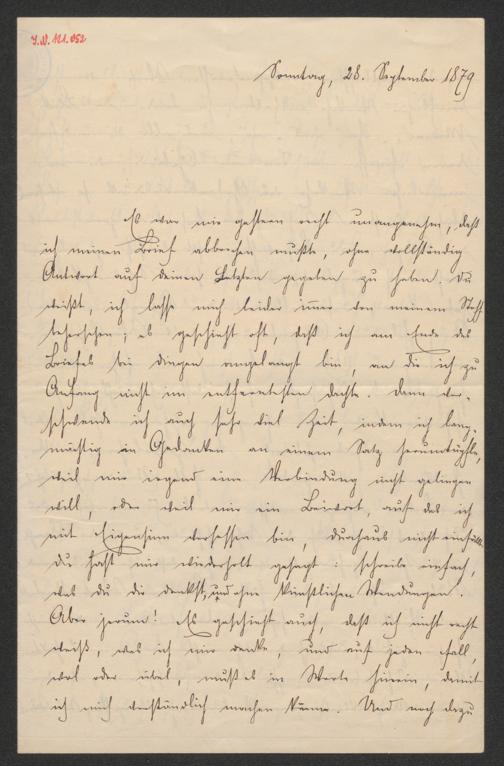 I.N. 121.052
Sonntag, 28. September 1879
Es war mir gestern recht unangenehm, daß
ich meinen Brief abbrechen mußte, ohne vollständig
Antwort auf deinen Letzten gegeben zu haben. Du
weißt, ich lasse mich leider im̅er von meinem Stoff
beherschen; es geschieht oft, daß ich am Ende des
Briefes bei dingen angelangt bin, an die ich zu
Anfang nicht im entferntesten dachte. Dann ver-
schwende ich auch sehr viel Zeit, indem ich lang-
mächtig in Gedanken an einem Satz herumtüftle,
weil mir irgend eine Verbindung nicht gelingen
will, oder weil mir ein Beiwort, auf das ich
mit Eigensinn versessen bin, durchaus nicht einfällt.
Du hast mir wiederholt gesagt: schreib einfach,
was du dir denkst, und ohne künstlichen Wendungen.
Aber zerum! Es geschieht auch, daß ich nicht recht
weiß, was ich mir denke, und auf jeden Fall,
wol oder übel, muß es in Worte hinein, damit
ich mich verständlich machen kann. Und noch dazu